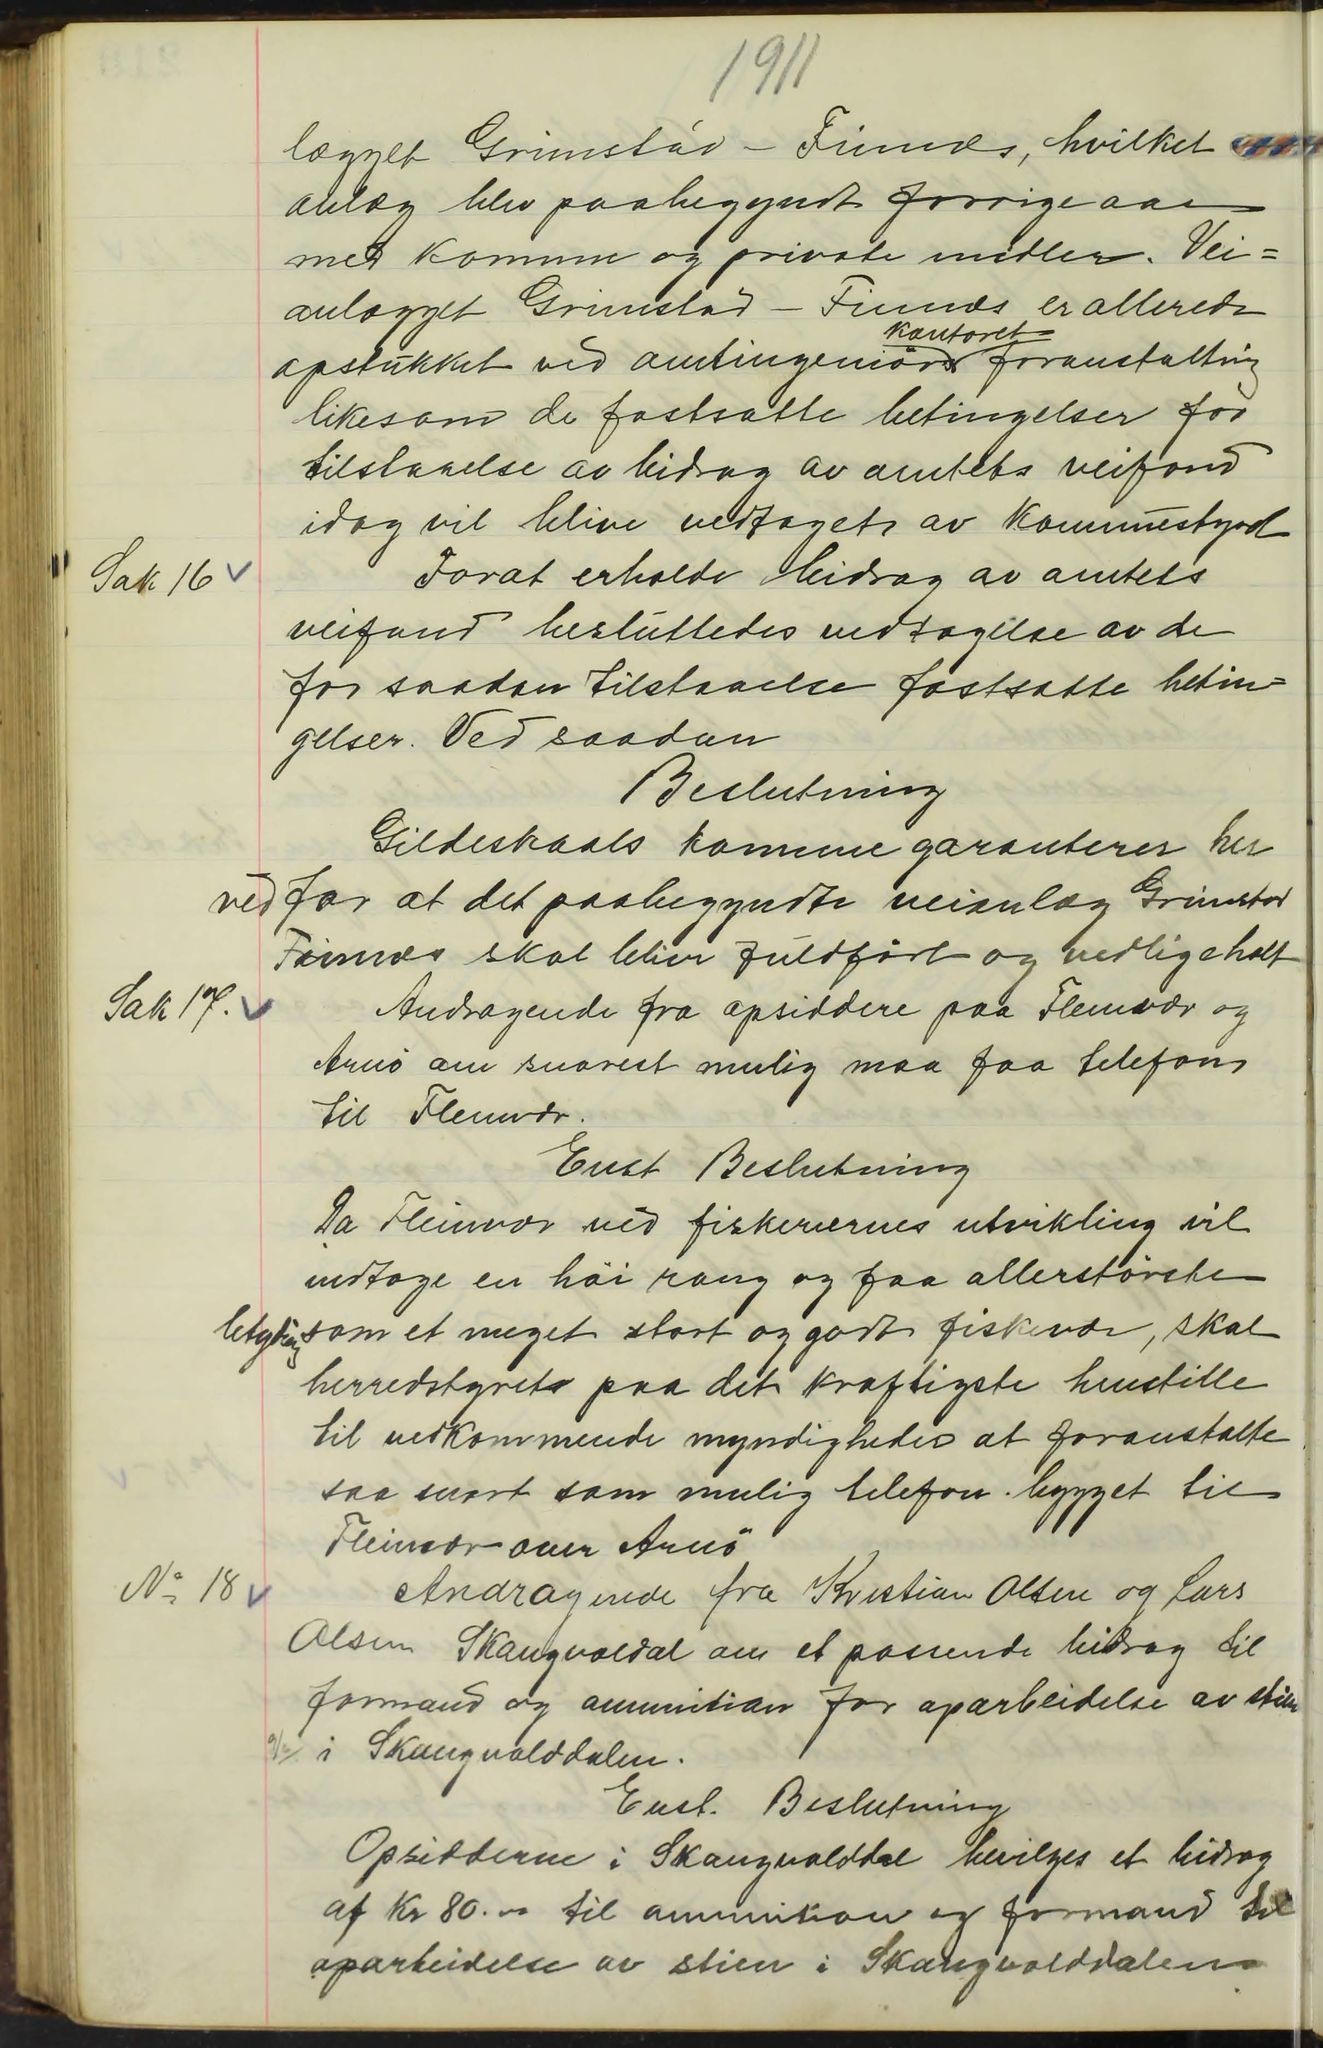 1911
lægget Grimstad - Finnæs, hvilket
anlæg blev paabegyndt forrige aar
med komune og private midler. Vei=
anlægget Grimstad - Finnæs er allerede
kontoret
opstukket ved amtingeniør foranstaltning
likesom de fastsatte betingelser for
tilstaaelse av bidrag av amtets veifond
idag vil blive vedtaget av Kommunestyret
Sak 16
Forat erholde bidrag av amtets
veifond besluttedes vedtagelse av de
for saadan tilstaaelse fastsatte betin=
gelser. Ved saadan
Beslutning
Gildeskaals komune garanterer her
ved for at det paabegyndte veianlæg Grimstad
Finnæs skal blive fuldført og vedligeholt
Sak 17.
Andragende fra opsiddere paa Fleinvær og
Arnö om snarest mulig maa faa telefon
til Fleinvær.
Enst Beslutning
Da Fleinvær ved fiskeriernes utvikling vil
indtage en höi rang og faa allerstörste
betydning som et meget stort og godt fiskevær, skal
herredstyret paa det kraftigste henstille
til vedkommende myndigheder at foranstalte
saa snart som mulig telefon bygget til
Fleinvær over Arnö
No 18
Andragende fra Kristian Olsen og Lars
Olsen Skaugvoldal om et passende bidrag til
formand og ammunition for oparbeidelse av stien
i Skaugvolddalen.
Enst. Beslutning
Opsidderne i Skaugvolddal bevilges et bidrag
af Kr 80.00 til ammunition og formand til
oparbeidelse av stien i Skaugvolddalen